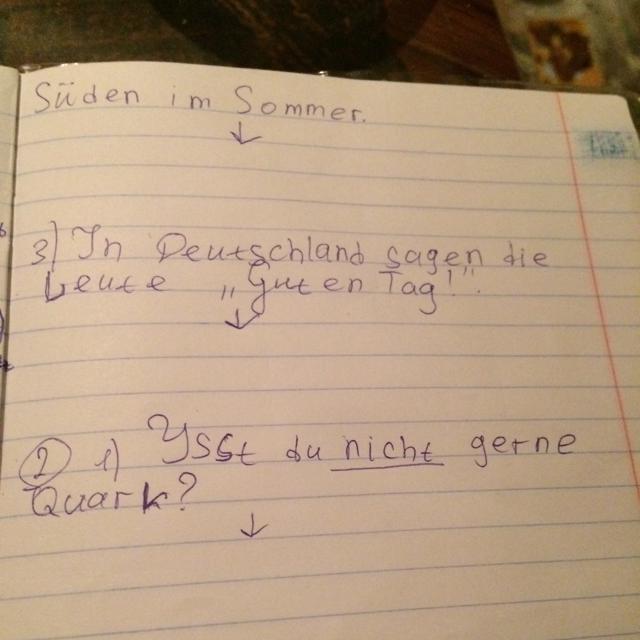 Süden im Sommer.
↓
3) In Deutschland sagen die
Leute „Guten Tag!".
↓
② 1) Isst du nicht gerne
Quark?
↓